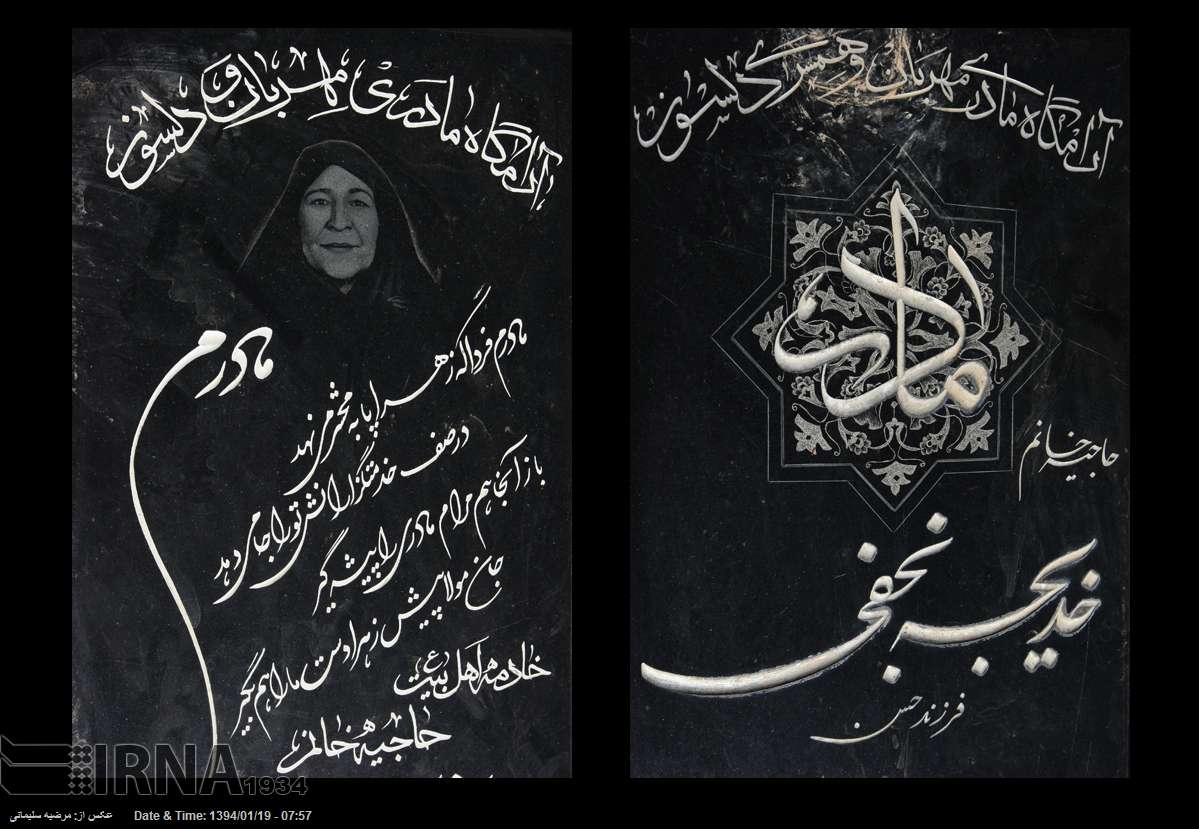 آرامگاه مادری مهربان و همسری دلسوز
مادر
حاجیه خانم
خدیجه نجفی
فرزند حسن
آرامگاه مادری مهربان و دلسوز
مادرم
مادرم فردا که زهرا پا به محشر می نهد
در صف خدمتگزارانش تو را جا می دهد
باز آنجا هم مرام مادری را پیش گیر
جان مولا پیش زهرا دست ما را هم بگیر
خادمه اهل بیت ع
حاجیه خانم
IRNA
1934
عکس از: مرضیه سلیمانی Date & Time: 1394/01/19 - 07:57